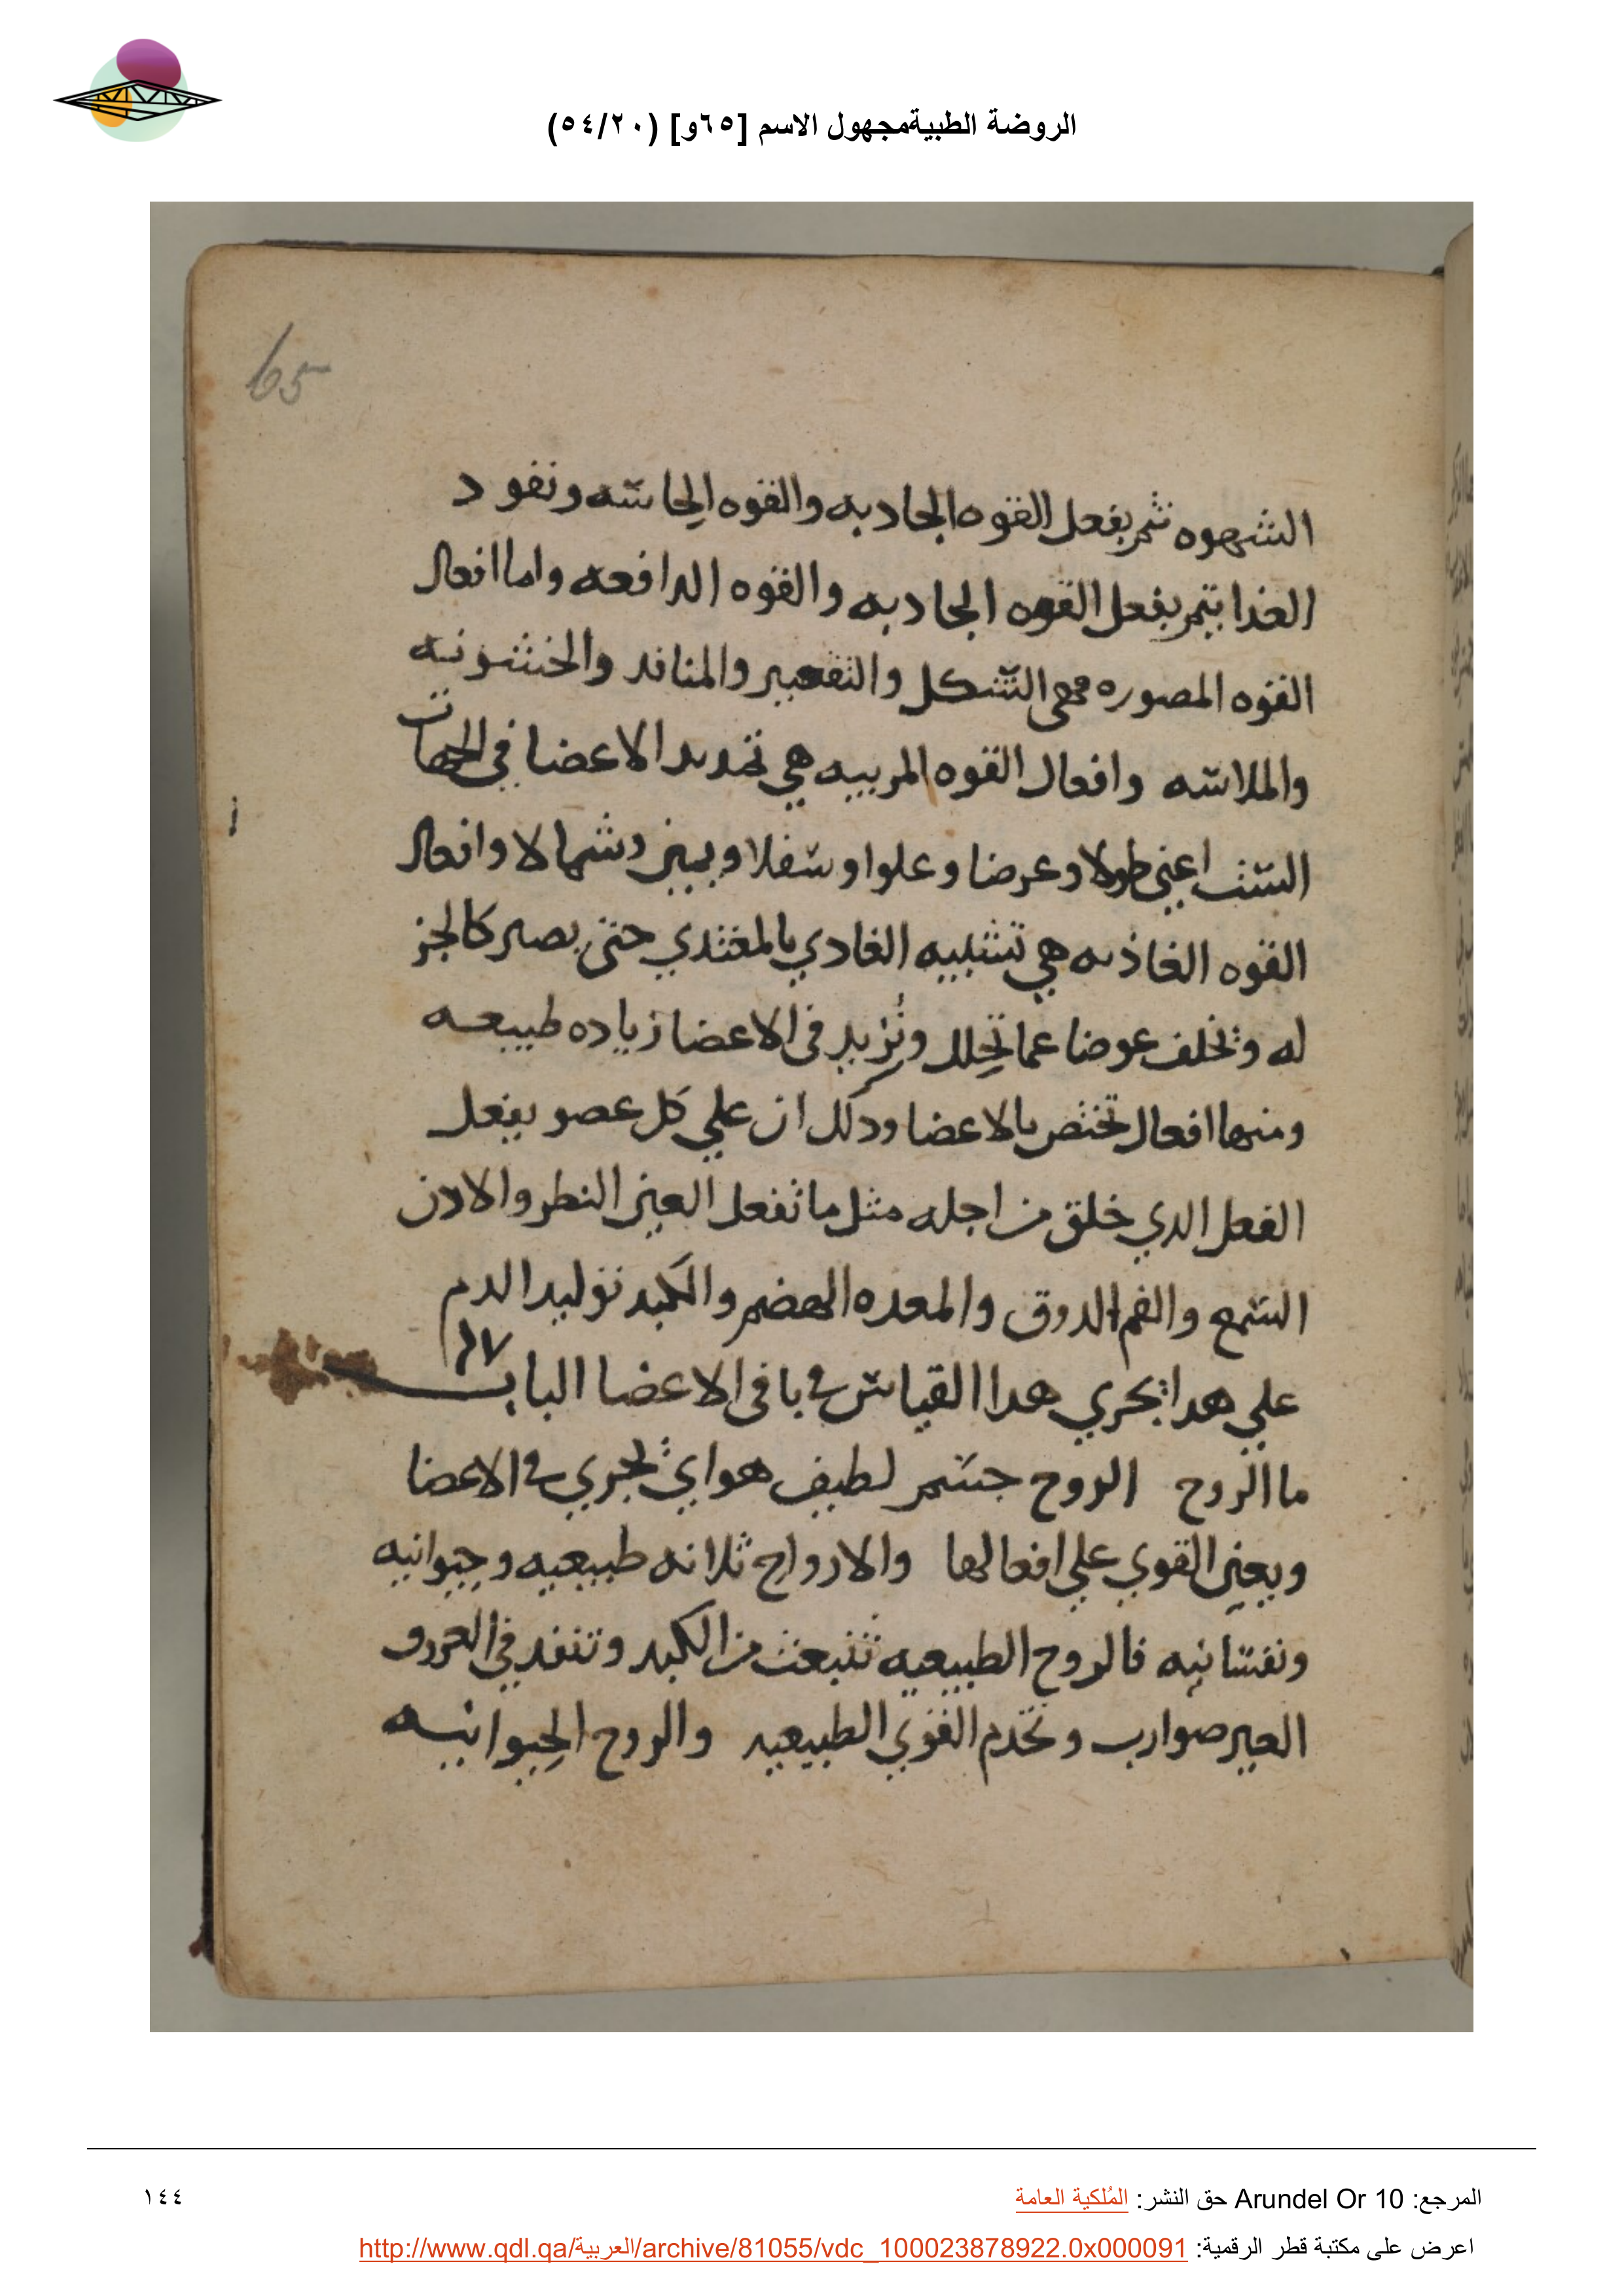 الروضة الطبيةمجهول الاسم [٦٥و] (٥٤/٢٠)
65
الشهوه تتم بفعل القوه الجادبه والقوه الحاسه ونفود
الغدا يتم بفعل القوه الجادبه والقوه الدافعه واما افعال
القوه المصوره فهى التشكل والتقعير والمنافد والخشونه
والملاسه وافعال القوه المربيه هي تمديد الاعضا فى الجهات
الست اعنى طولا وعرضا وعلوا وسفلا ويمين وشمالا وافعال
القوه الغاذيه هي تشبيه الغادي بالمغتدي حتى يصير كالجز
له وتخلف عوضا عما تحلل وتزيد فى الاعضا زياده طبيعه
ومنها افعال تختص بالاعضا ودلك ان علي كل عضو يفعل
الفعل الدي خلق من اجله مثل ما تفعل العين النطر والادن
السمع والفم الدوق والمعده الهضم والكبد توليد الدم
علي هدا يجري هدا القياس في باقى الاعضا الباب
ما الروح الروح جسم لطيف هواي تجري في الاعضا
ويعين القوي علي افعالها والارواح ثلاثه طبيعيه وحيوانيه
ونفسانيه فالروح الطبيعيه تنبعث من الكبد وتنفد في العروق
الغير ضوارب وتخدم القوي الطبيعيه والروح الحيوانيه
المرجع: Arundel Or 10 حق النشر: المُلكية العامة
١٤٤
اعرض على مكتبة قطر الرقمية: http://www.qdl.qa/العربية/archive/81055/vdc_100023878922.0x000091